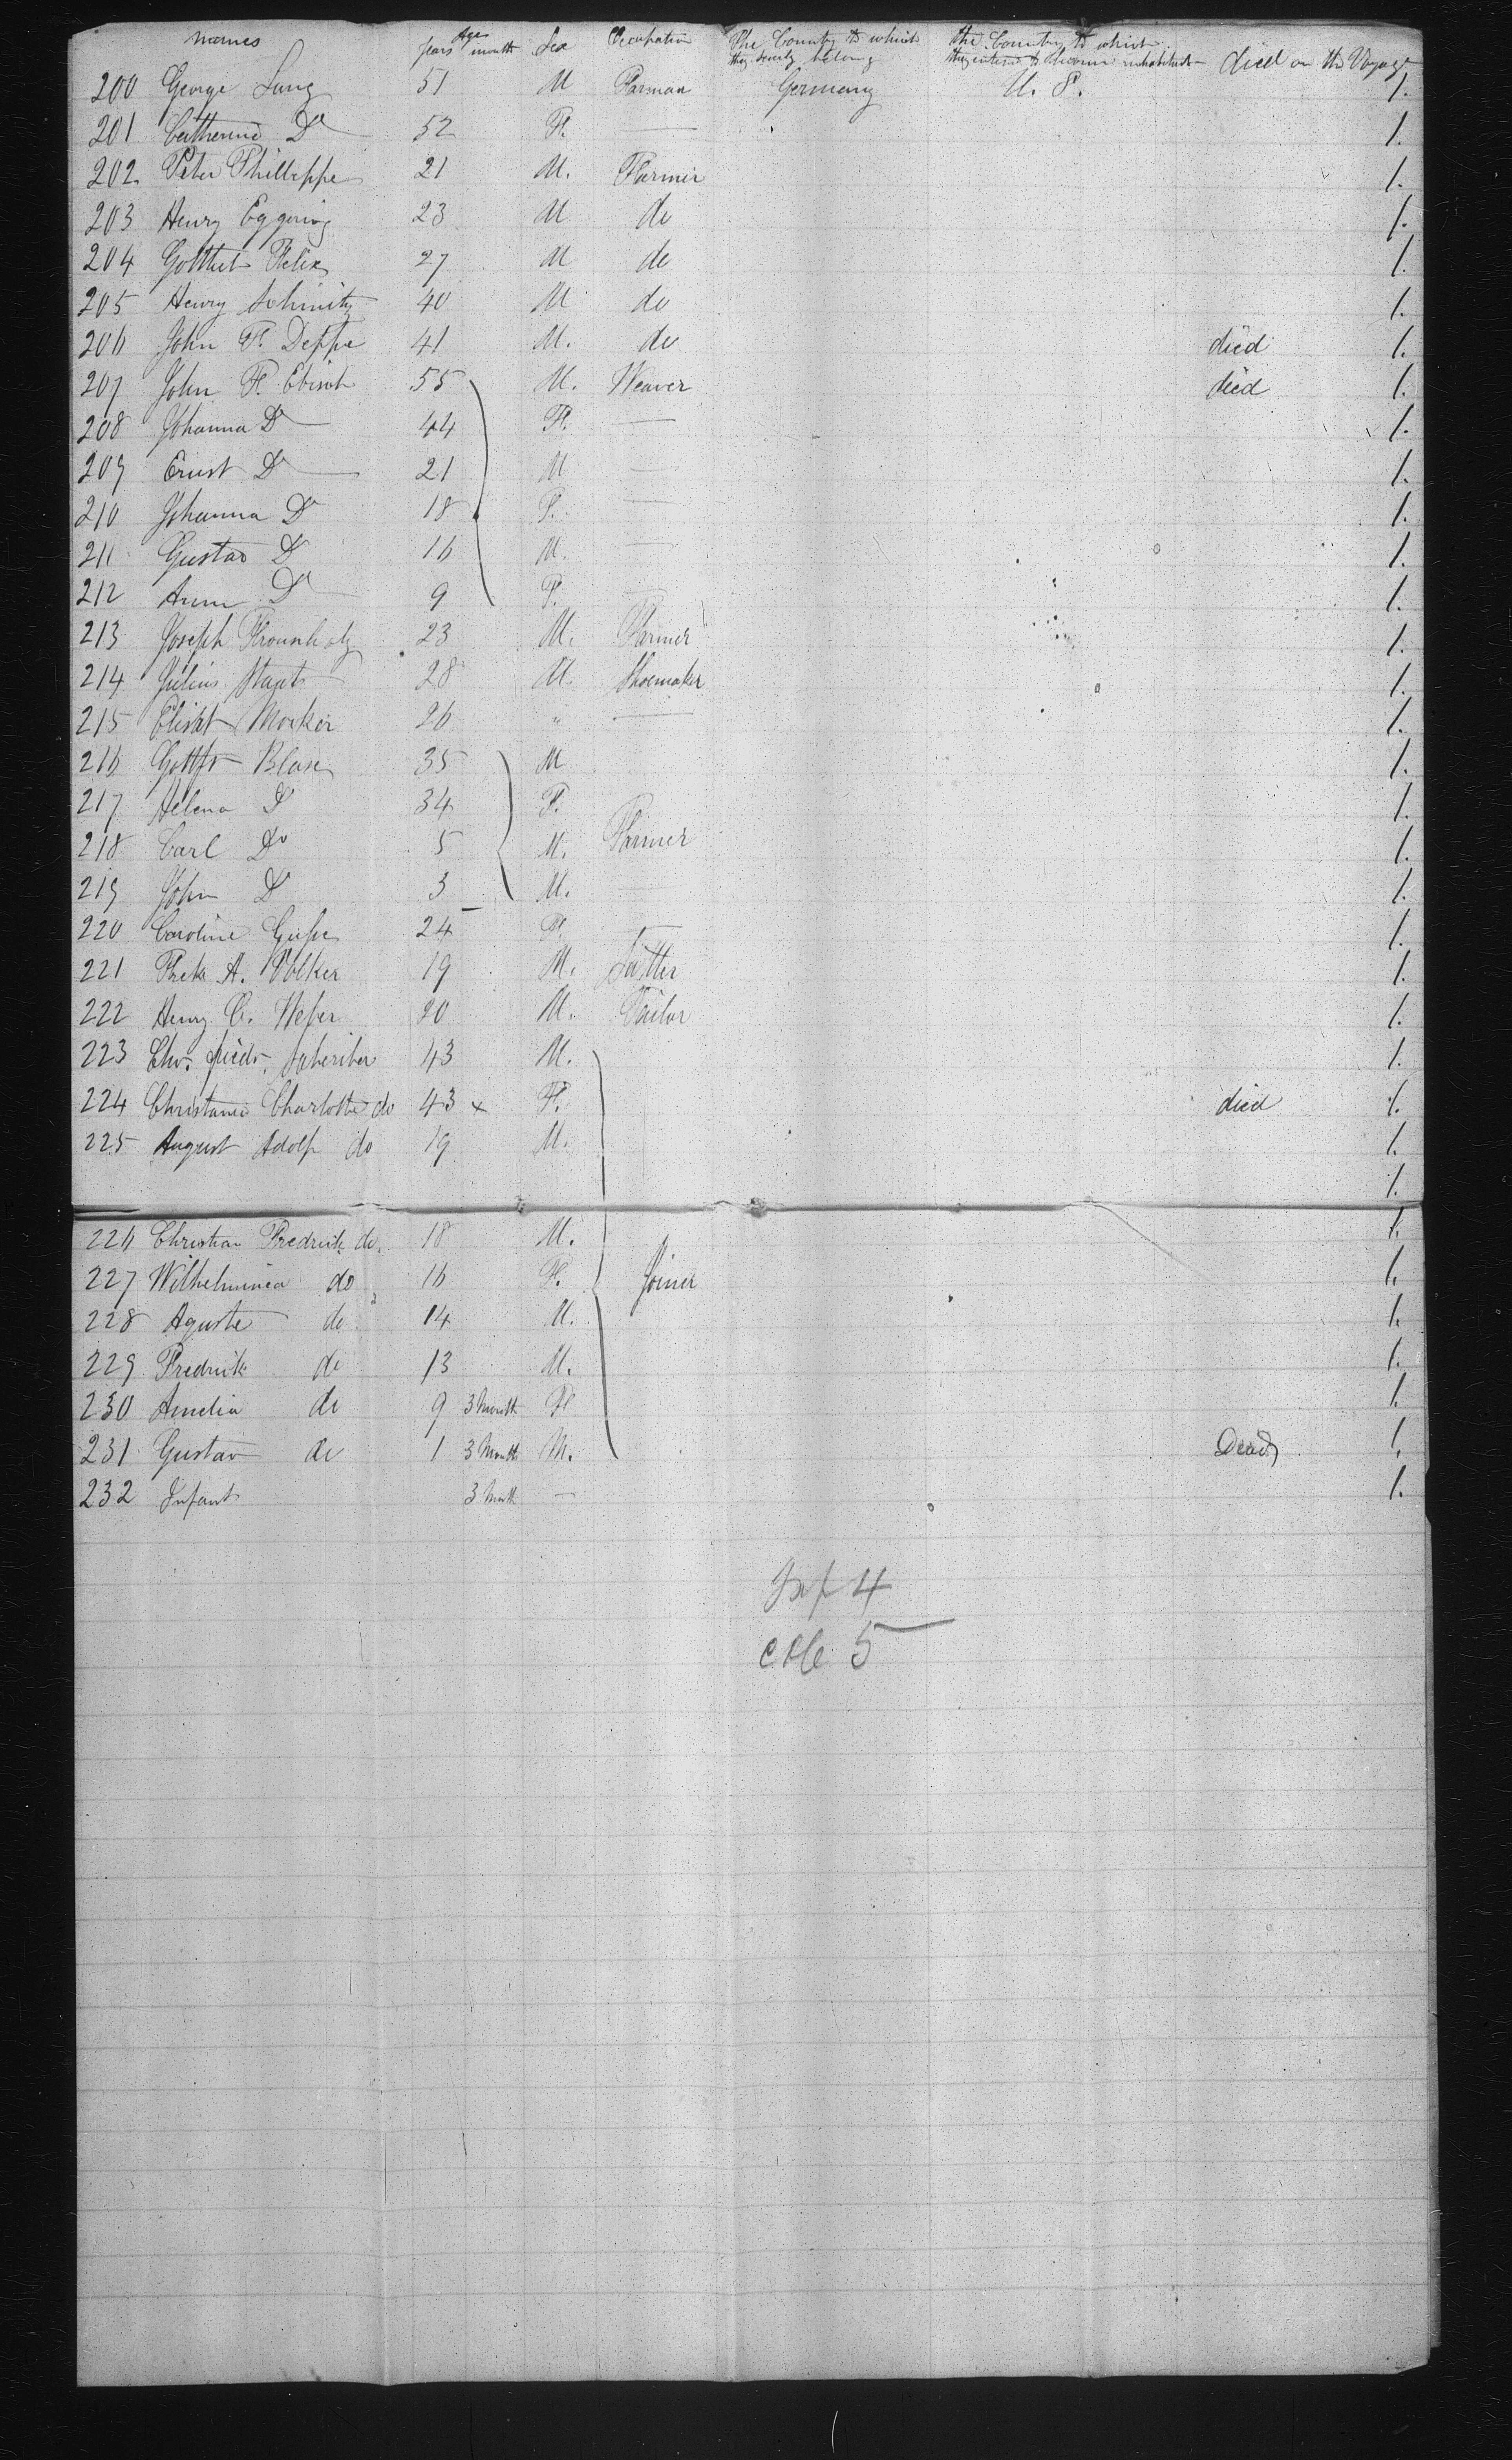 names Ages years month Sex Occupation The Country to which they severly belong the Country to which they intend to become inhabitants died on the Voyage
200 George Lang 51 M Farmer Germany U. S. 1.
201 Catherine Do 52 F. — 1.
202 Peter Phillippe 21 M. Farmer 1.
203 Henry Eggering 23 M do 1.
204 Gottlieb Felix 27 M do 1.
205 Henry Schmitz 40 M do 1.
206 John F. Deppe 41 M. do died 1.
207 John F. 55 M. Weaver died 1.
208 Johanna Do 44 F. — 1.
209 Ernst Do 21 M — 1.
210 Johanna Do 18 F. — 1.
211 Gustav Do 16 M. — 1.
212 Anna Do 9 F. — 1.
213 Joseph 23 M. Farmer 1.
214 Julius 28 M. Shoemaker 1.
215 26 " — 1.
216 35 M 1.
217 Helena Do 34 F. 1.
218 Carl Do 5 M. Farmer 1.
219 John Do 3 M. — 1.
220 Caroline 24 F. — 1.
221 A. Volker 19 M. 1.
222 Henry C. 20 M. Tailor 1.
223 43 M. 1.
224 Charlotte do 43 x F. died 1.
225 August Adolf do 19 M. 1.
1.
226 Christian Fredrick do. 18 M. 1.
227 Wilhelmina do 16 F. Joiner 1.
228 Aguste do 14 M. 1.
229 Fredrick do 13 M. 1.
230 Amelia do 9 3 Month F 1.
231 Gustav do 1 3 Month M. Dead 1.
232 Infant 3 Month — 1.
Inf 4
5